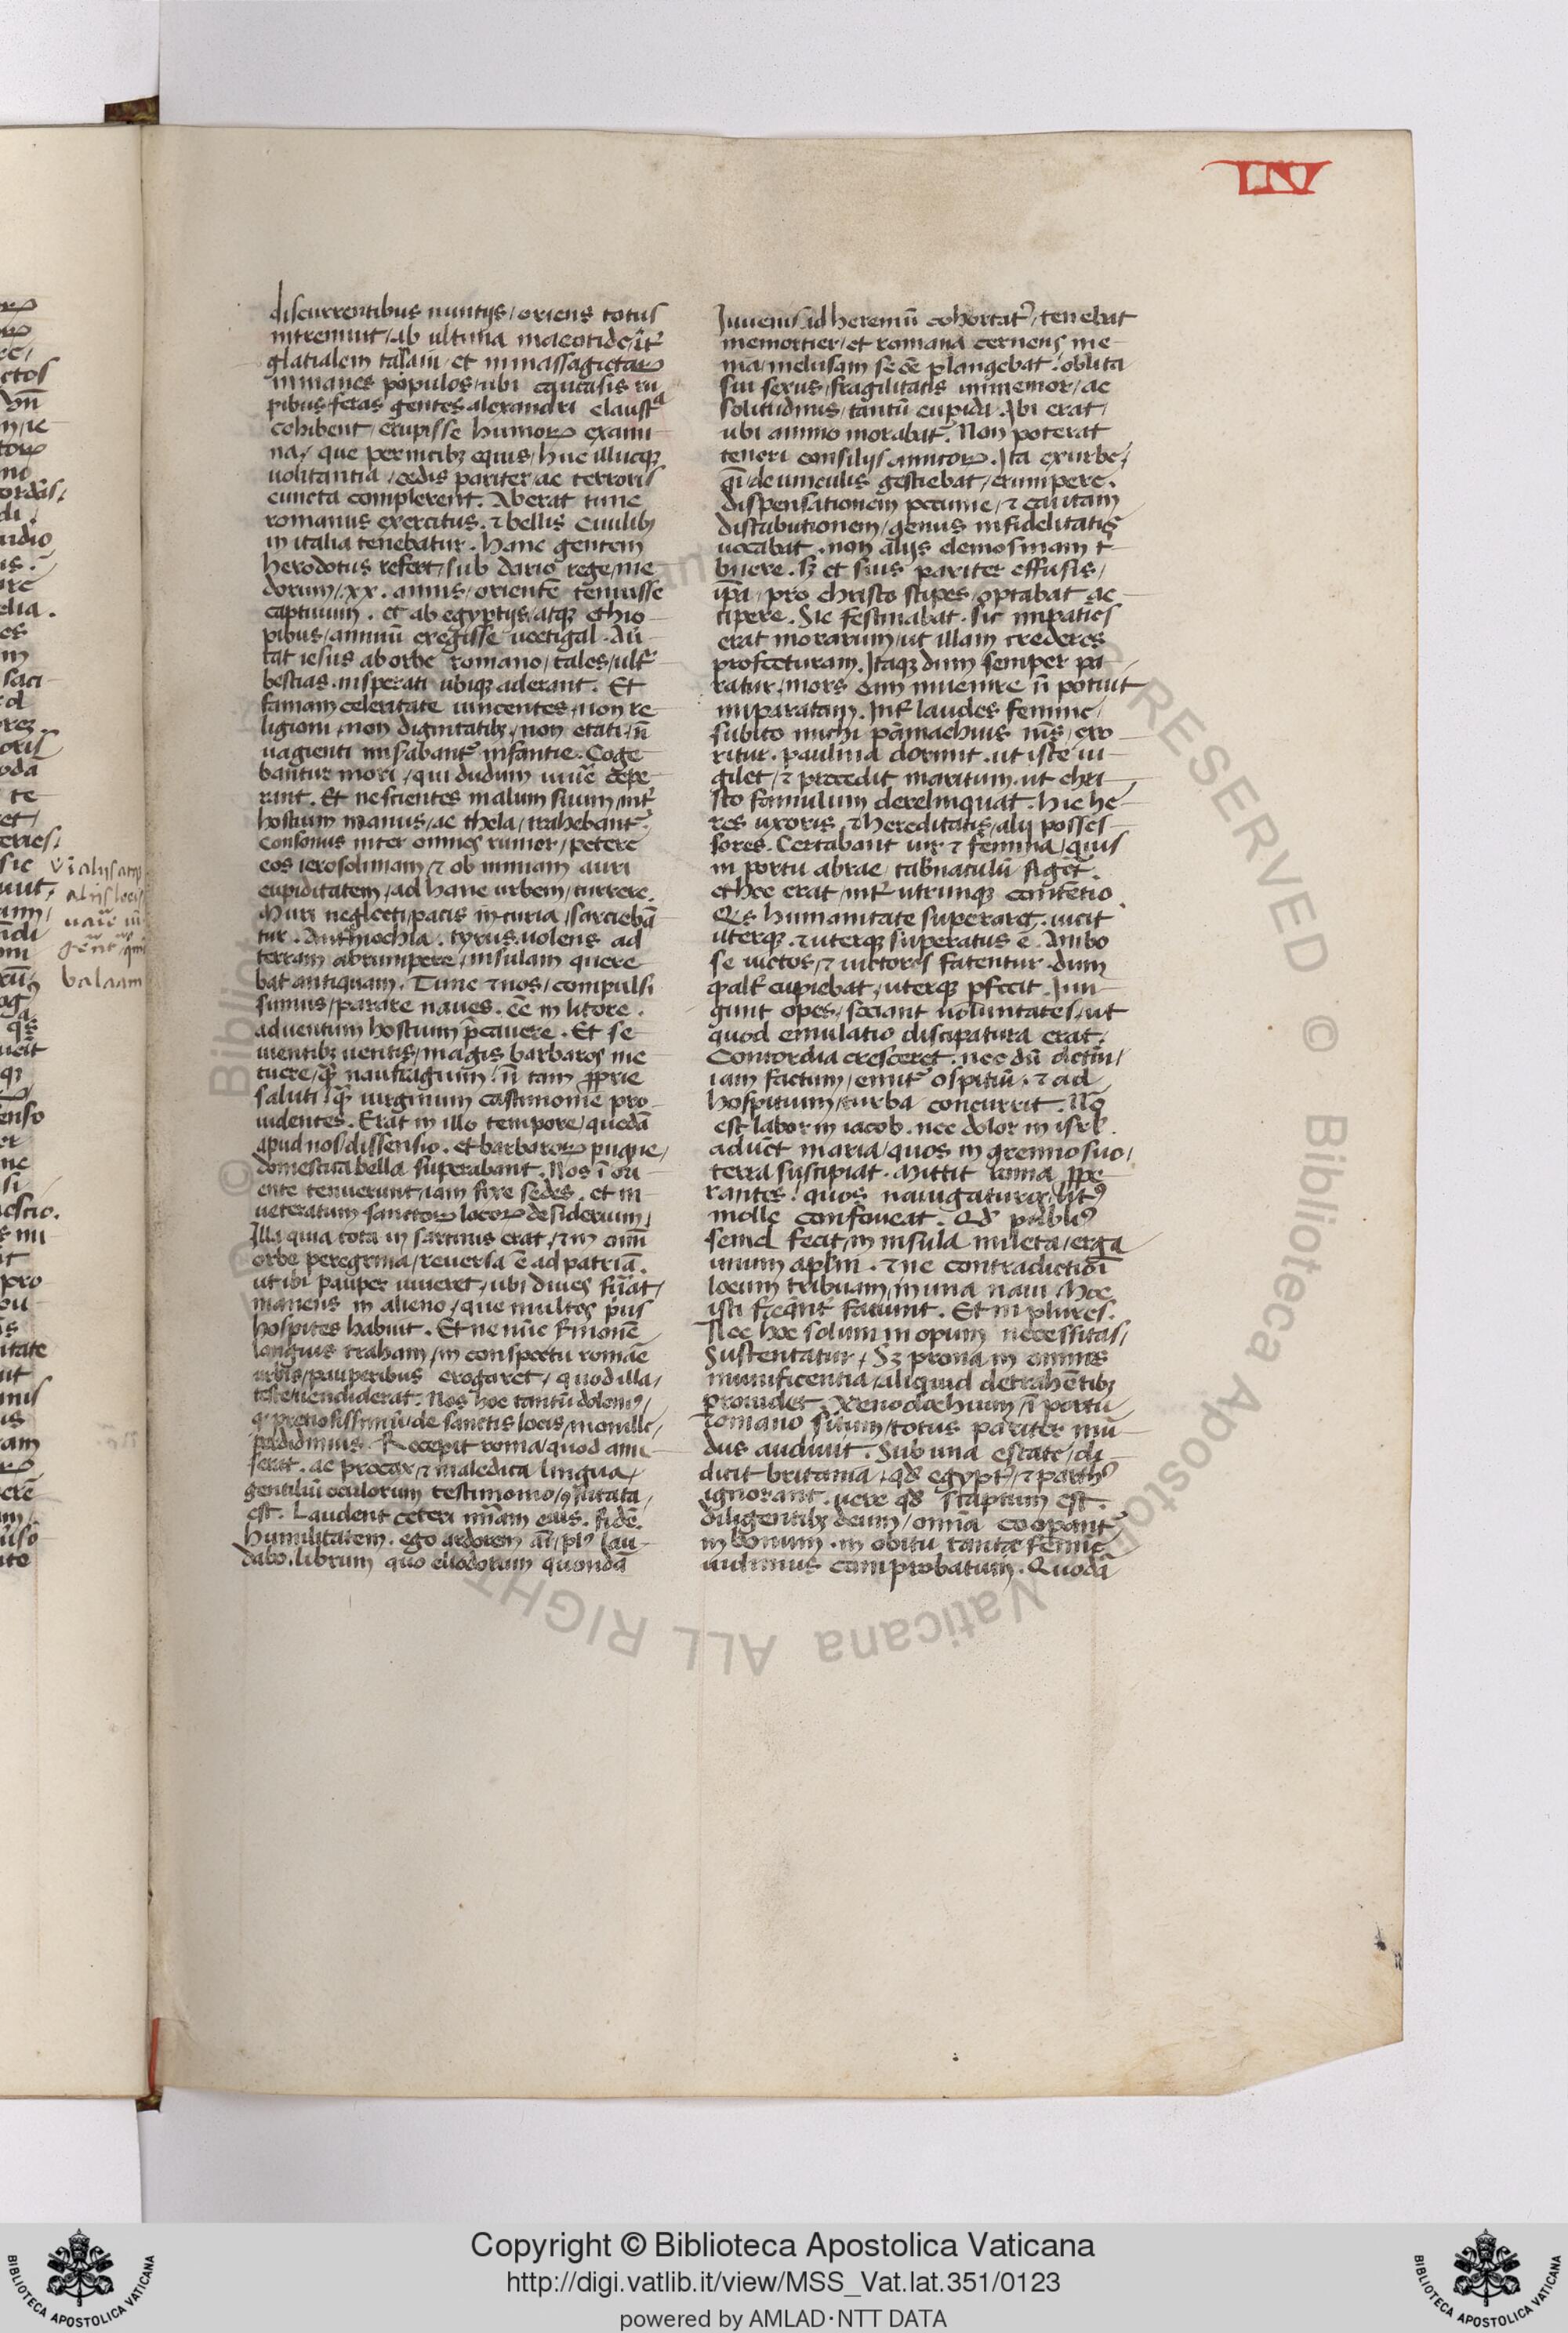 IN
discurrentibus nuntijs/oriens totus
intremuit/ab ultima maeotide/int̃
glatialem tafaim/et in massagetaꝝ
inmanes populos/ubi caucasis ru
pibus/feras gentes alexandri claustᵃ
cohibent/erupisse humoꝝ exami
na/que pernicibꝫ equis/huc illucqꝫ
uolitantia/cedis pariter/ac terroris
cuncta complerent. Aberat tunc
romanus exercitus. ⁊ bellis Ciuilibꝫ
in italia tenebatur. hanc gentem
herodotus refert/sub dario rege/me
dorum/.xx. annis/orientē tenuisse
captiuum. et ab egyptijs/atqꝫ ethio
pibus/annuū exegisse uectigal. Au
tat iesus ab orbe romano/tales/ult̃
bestias. insperati ubiqꝫ aderant. Et
famam celeritate uincentes/non re
ligioni/non dignitatibꝫ/non etati/ñ
uagienti misabant̃ infantie. Coge
bantur mori/qui dudum uiuẽ cepe
rant. Et nescientes malum suum/int̃
hostium manus/ac thela/trahebant̃.
Consonus inter omnes rumor/petere
eos ierosolimam/⁊ ob nimiam auri
cupiditatem/ad hanc urbem/currere.
Muri neglecti/pacis incuria/sarciebā
tur. Anthiochia. tyrus. uolens ad
terram abrumpere/insulam quere
bat antiquam. Tunc ⁊ nos/compulsi
sumus/parare naues. eẽ in litore.
aduentum hostium p̄cauere. Et se
uientibꝫ uentis/magis barbaros me
tuere/qͣ̃ naufragium/ñ tam ꝓprie
saluti/qͣ̃ uirginum castimonie pro
uidentes. Erat in illo tempore/quedā
apud nos/dissensio. et barbaroꝝ pugne/
domestica bella superabant. Nos ī ori
ente tenuerunt/iam fixe sedes. et in
ueteratum sanctoꝝ locoꝝ desiderium/
Illa quia tota in sarcinis erat/⁊ in omni
orbe peregrina/reuersa ē ad patriā.
ut ibi pauper uiueret/ubi diues fũat/
manens in alieno/que multos pⁱus
hospites habuit. Et ne nūc sermonē
longius traham/in conspectu romāe
urbis/pauperibus erogaret/quod illa/
teste uendiderat. Nos hoc tantū dolemꝰ/
qͫ pretiosissimū/de sanctis locis/monile/
perdidimus. Recepit roma/quod ami
serat. ac procax/⁊ maledica lingua/
gentiliū oculorum testimonio/ꝯfutata/
est. Laudent ceteri mĩam eius. fidē.
humilitatem. ego ardorem aĩ/plꝰ lau
dabo. librum quo eliodorum quondā
Iuuenis ad heremū cohortatꝰ/tenebat
memoriter/et romana cernens me
nia/inclusam se eẽ plangebat. oblita
sui sexus/fragilitatis inmemor/ac
solitudinis/tantū cupida. ibi erat/
ubi animo morabat̃. Non poterat
teneri consilijs amicoꝝ. Ita ex urbe/
qͣ̃/de uinculis gestiebat/erumpere.
dispensationem pecunie/⁊ cautam
distributionem/genus infidelitatis
uocabat. non alijs elemosinam tⁱ
buere. Sꝫ et suis pariter effusis/
ip̄a/pro christo stipes/optabat ac
cipere. Sic festinabat. sic inpatiēs
erat morarum/ut illam crederes
profecturam. Itaqꝫ dum semper pa
ratur/mors eam inuenire ñ potuit
inparatam. Int̃ laudes femine/
subito michi pāmachius nr̄s/exo
ritur. paulina dormit. ut iste ui
gilet/⁊ precedit maritum. ut chri
sto famulum derelinquat. hic he
res uxoris. ⁊ hereditatis/alij posses
sores. Certabant uir ⁊ femina/quis
in portu abrae/tabnaculū figet̃.
et hec erat/int̃ utrunqꝫ contētio.
Qͥs humanitate superaret. uicit
uterqꝫ. ⁊ uterqꝫ superatus ē. Ambo
se uictos/⁊ uictores fatentur. dum
qͩ alt̃ cupiebat/uterqꝫ pfecit. Iun
gunt opes/sociant uoluntates/ut
quod emulatio discipatura erat/
Concordia cresceret. nec dū dictū/
iam factum/emit̃ ospitiū. ⁊ ad
hospitium/turba concurrit. Nō
est labor in iacob. nec dolor in isrl̃.
aducūt maria/quos in gremio suo/
terra suscipiat. Mittit roma ꝓpe
rantes. quos nauigaturos/litꝰ
molle confoueat. Qđ publiꝰ
semel fecit/in insula mileta/erga
unum apl̃m. ⁊ ne contradictiōī
locum tribuam/in una naui. hoc
isti freqn̄t̃ faciunt. Et in plures.
Nec hoc solum inopum necessitas/
Sustentatur/Sꝫ prona in omnes
munificentia/aliquid detrahētibꝫ
prouidet. Xenodochium/ī portu
romano situm/totus pariter mū
dus audiuit. Sub una estate/di
dicit britania. qđ egyptꝰ/⁊ parthꝰ
ignorant. uere qđ scriptum est.
diligentibꝫ deum/omīa coopant̃
in bonum. in obitu tante femine
uidimus comprobatum. Quodā
Copyright © Biblioteca Apostolica Vaticana
http://digi.vatlib.it/view/MSS_Vat.lat.351/0123
powered by AMLAD·NTT DATA